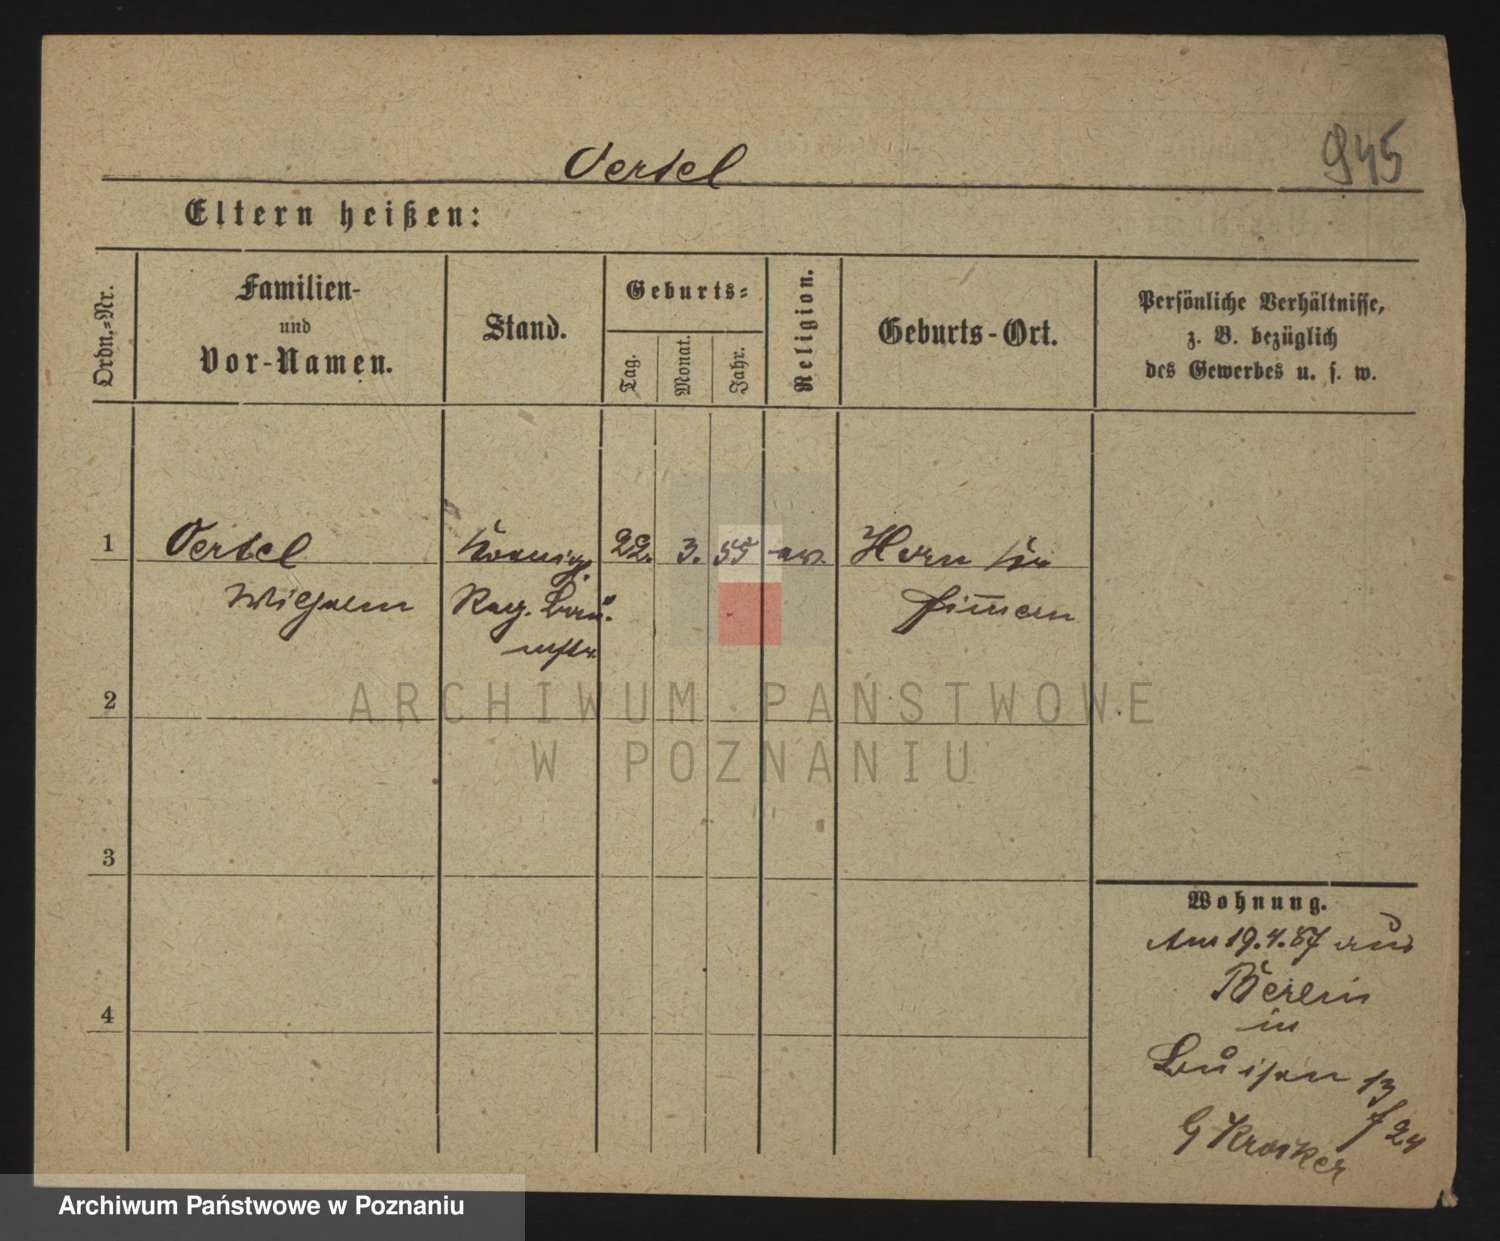 Oertel
945
Eltern heißen:
Ordn.-Nr.
Familien-
und
Vor-Namen.
Stand.
Geburts-
Tag.
Monat.
Jahr.
Religion.
Geburts-Ort.
Persönliche Verhältnisse,
z. B. bezüglich
des Gewerbes u. s. w.
1
Oertel
Wilhelm
Koenigl.
Reg. Bau-
mstr.
22.
3.
55
ev.
Horn
2
3
4
Wohnung.
Am 19.4.87 aus
Berlin
in
Luisen 13
f 24
ARCHIWUM PAŃSTWOWE
W POZNANIU
Archiwum Państwowe w Poznaniu